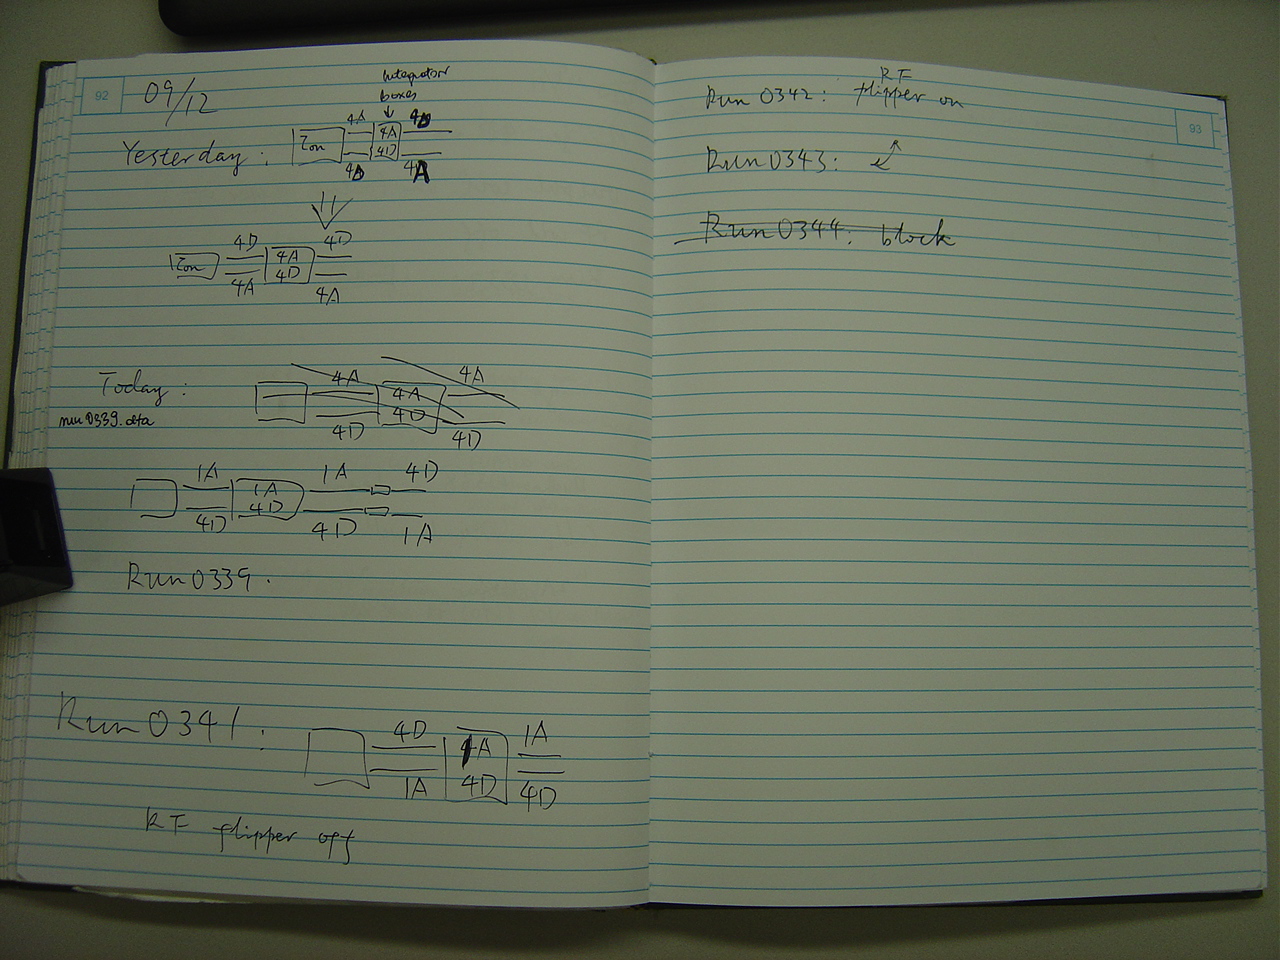 92
09/12
Integrator
boxes
Yesterday: Ion 4A 4A 4D
4D 4D 4A
4D 4D
Ion 4A
4A 4D 4A
Today: 4A 4A 4A
run0339.dta 4D 4D 4D
1A 1A 1A 4D
4D 4D 4D 1A
Run 0339.
Run 0341: 4D 1A 1A
1A 4D 4D
RF flipper off
93
RF
Run 0342: flipper on
Run 0343:
Run 0344: block